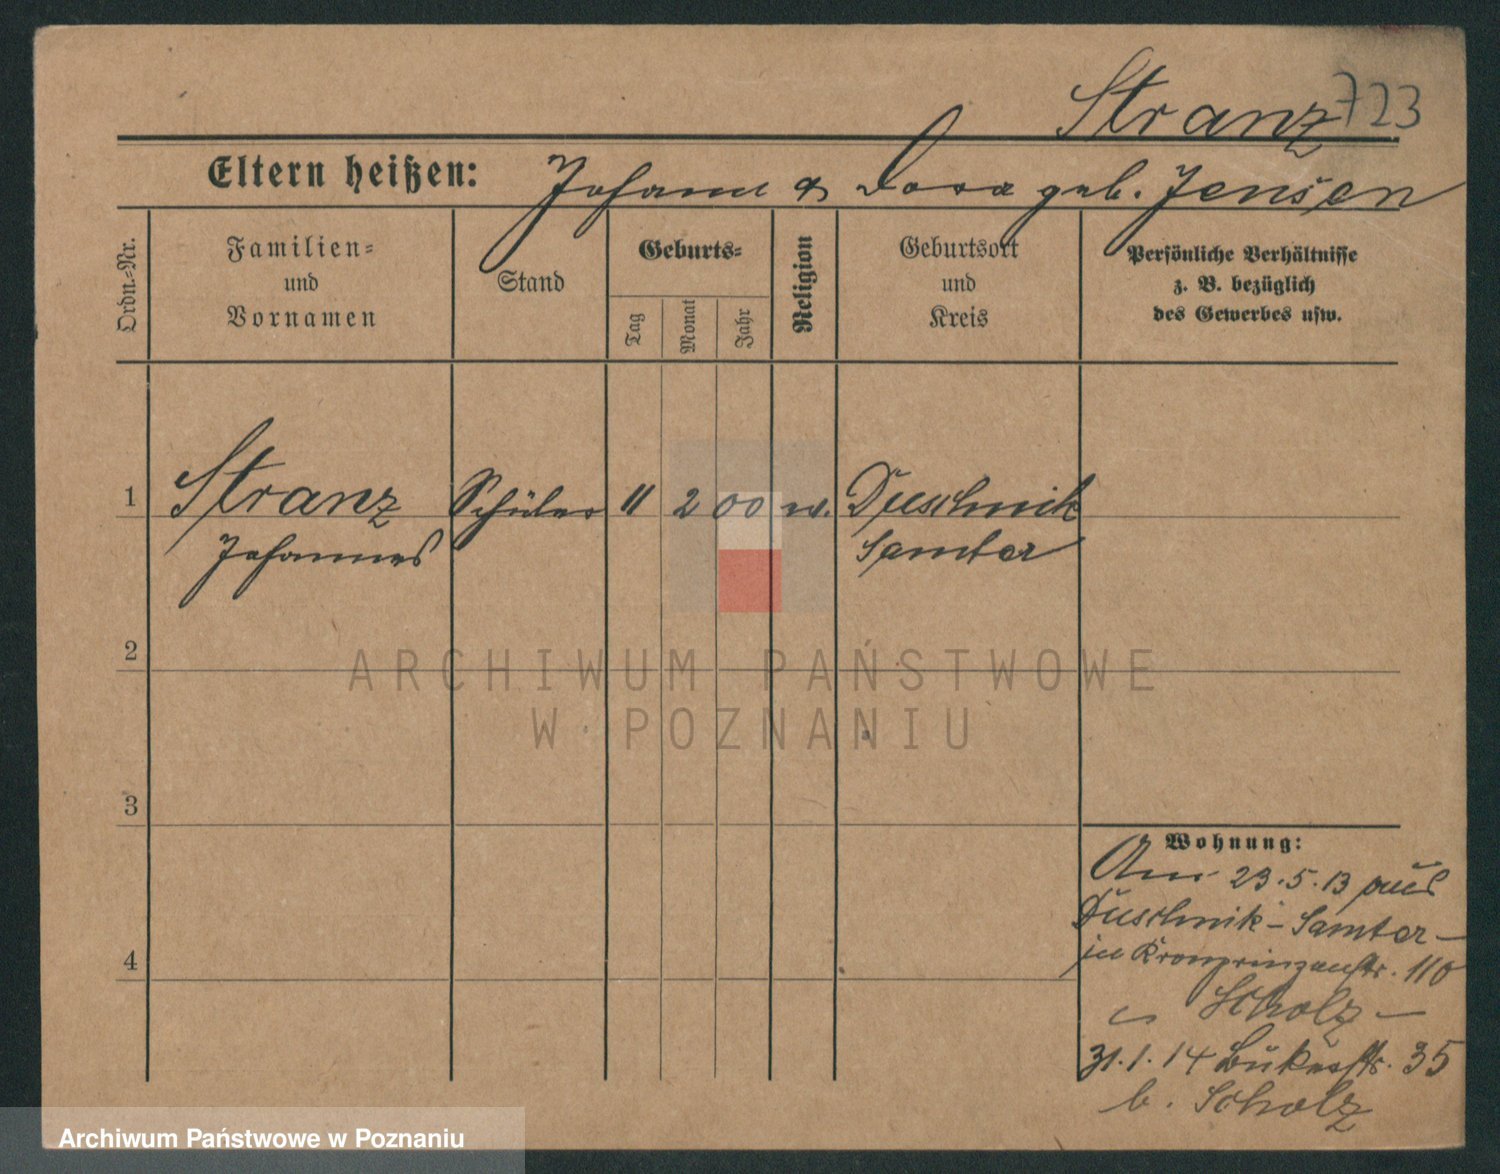 Stranz 723
Eltern heißen: Johann & Dora geb. Jensen
Ordn.-Nr.
Familien-
und
Vornamen
Stand
Geburts-
Tag
Monat
Jahr
Religion
Geburtsort
und
Kreis
Persönliche Verhältnisse
z. B. bezüglich
des Gewerbes usw.
1 Stranz Schüler 11 2 00 w. Duschnik
Johannes Samter
2
3
4
Wohnung:
Am 23.5.13 aus
Duschnik-Samter-
in Kronprinzenstr. 110
Scholz-
31.1.14 Bukerstr. 35
b. Scholz
ARCHIWUM PAŃSTWOWE
W POZNANIU
Archiwum Państwowe w Poznaniu